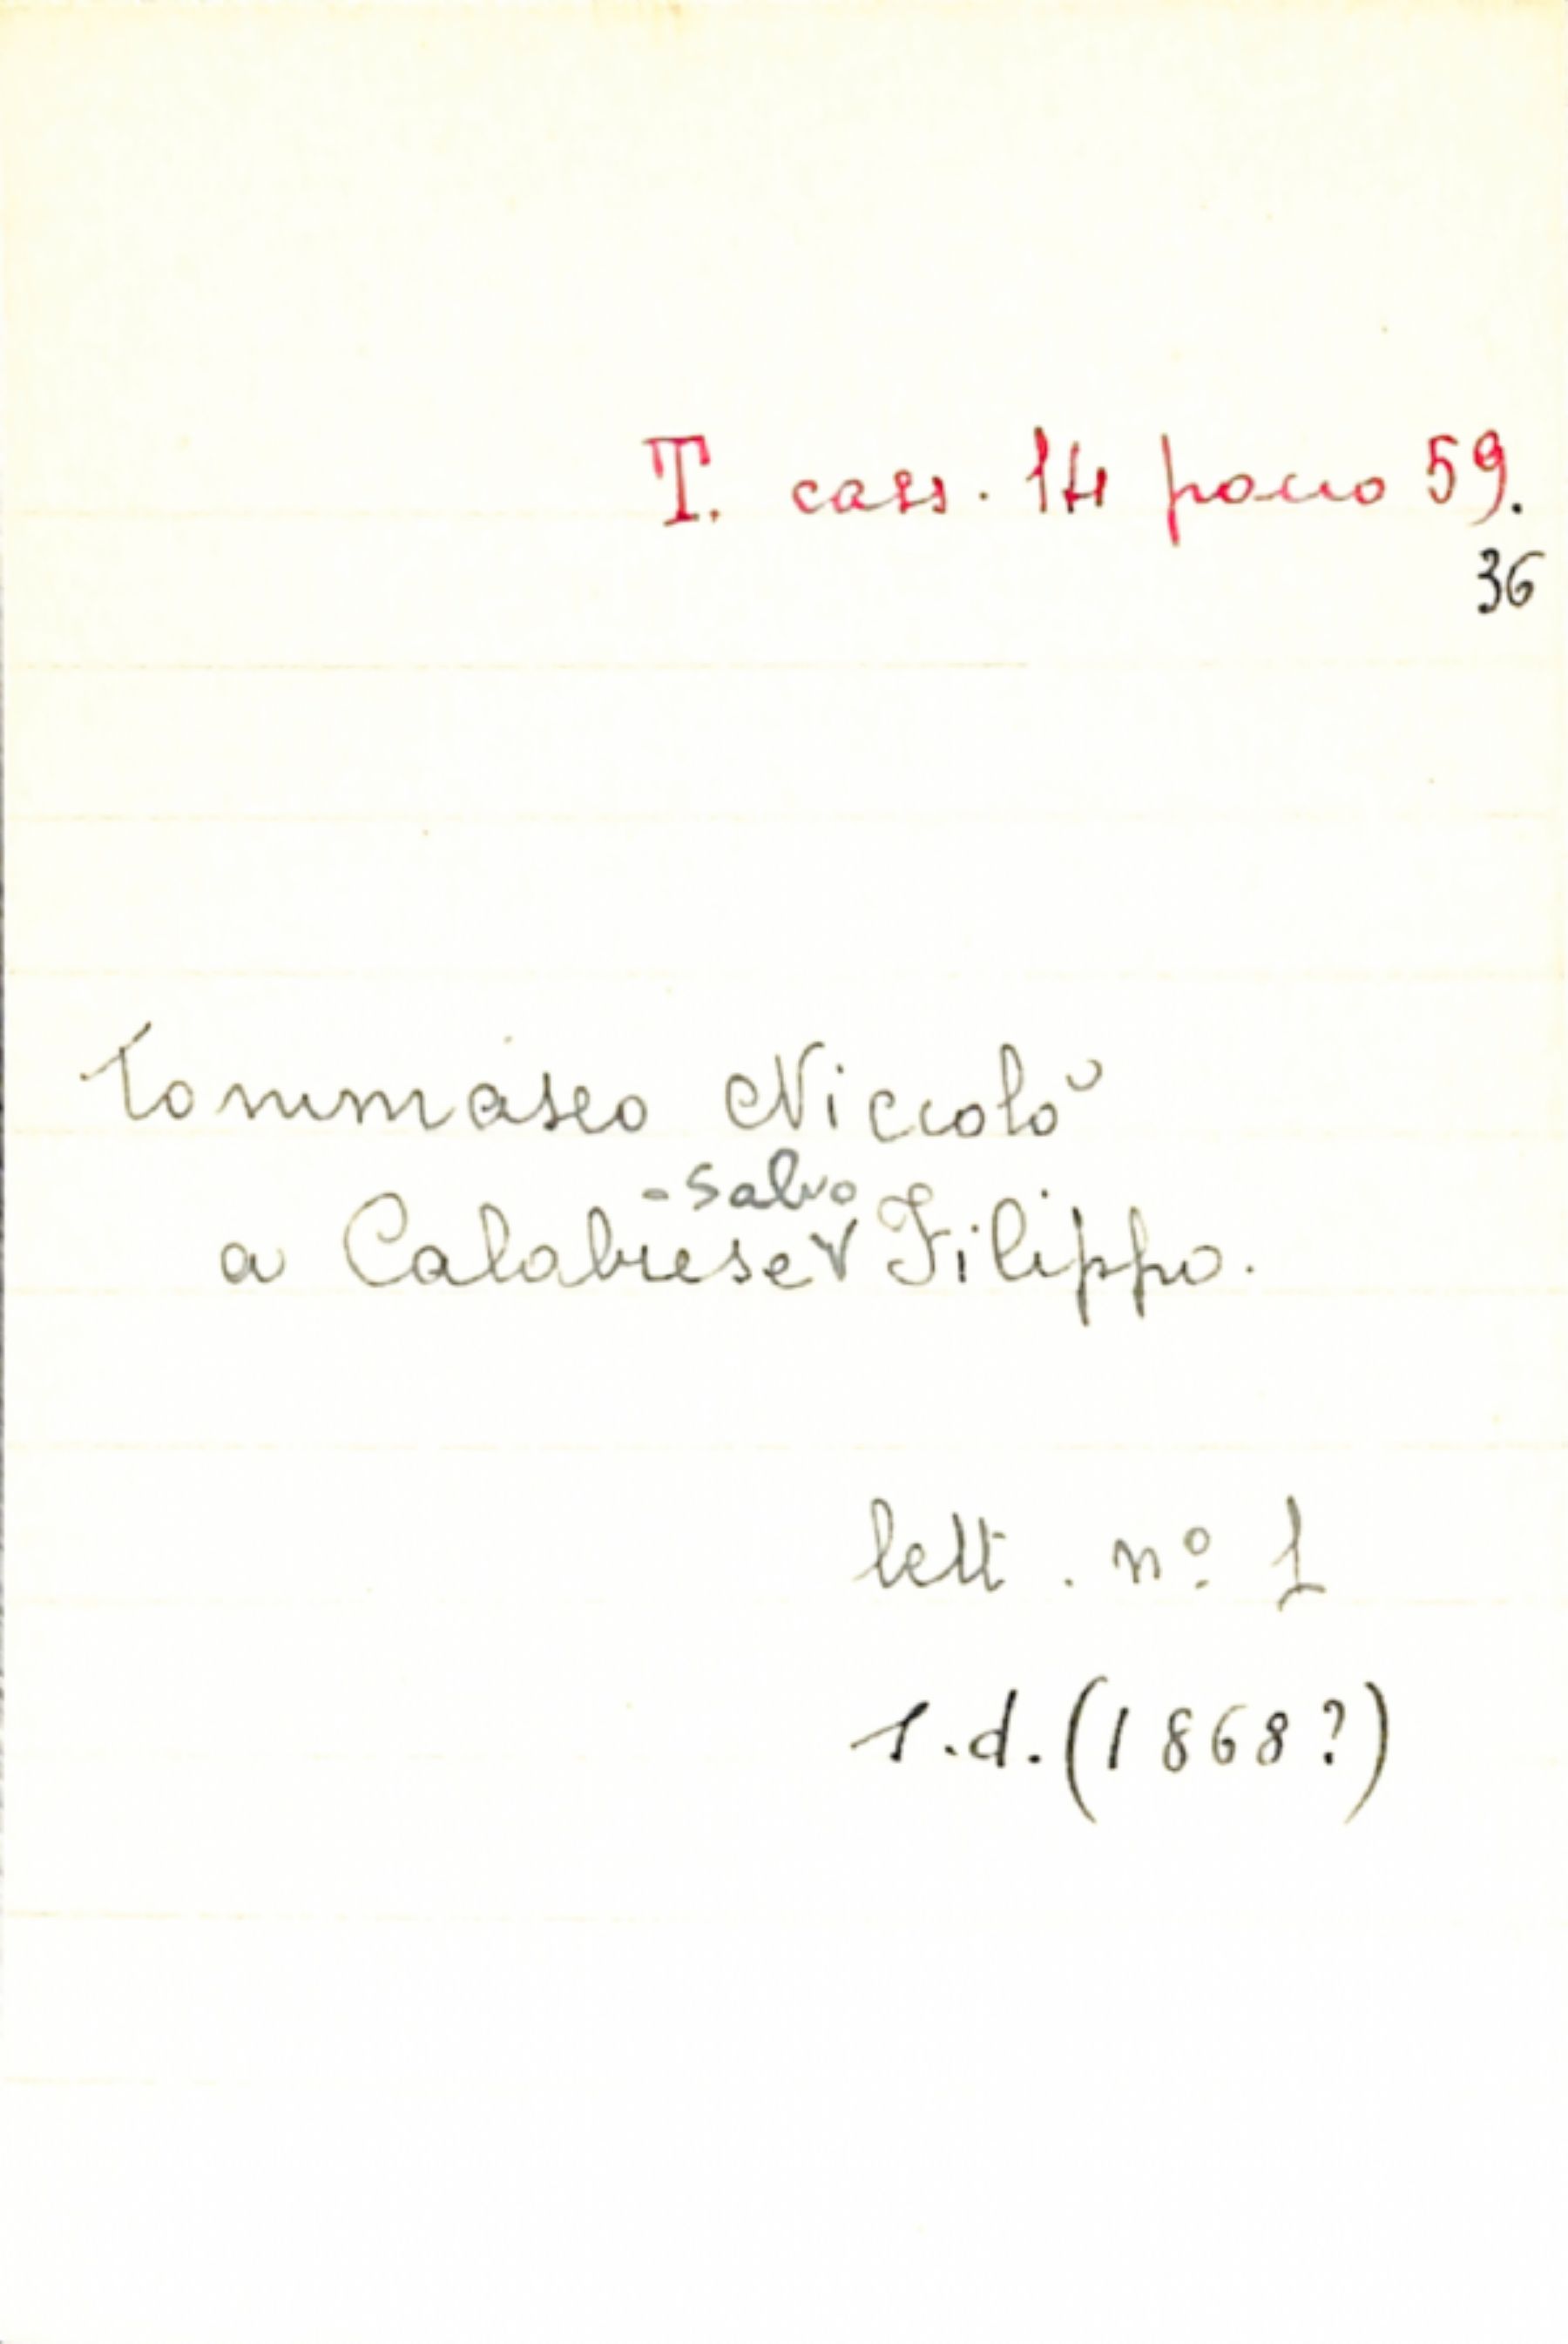 T. cass. 14 pacco 59.
36
Tommaseo Niccolò
- Salvo
a Calabrese V Filippo.
lett. nº 1
s.d. (1868?)